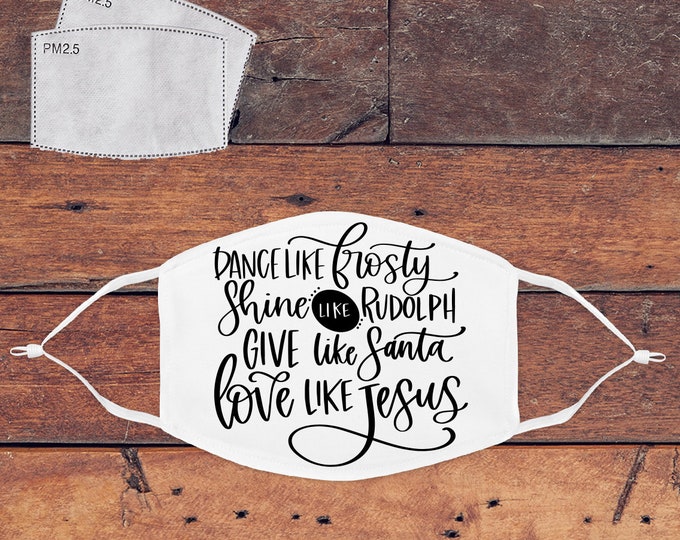 M2.5
PM2.5
DANCE LIKE frosty
Shine LIKE RUDOLPH
GIVE like Santa
love LIKE Jesus